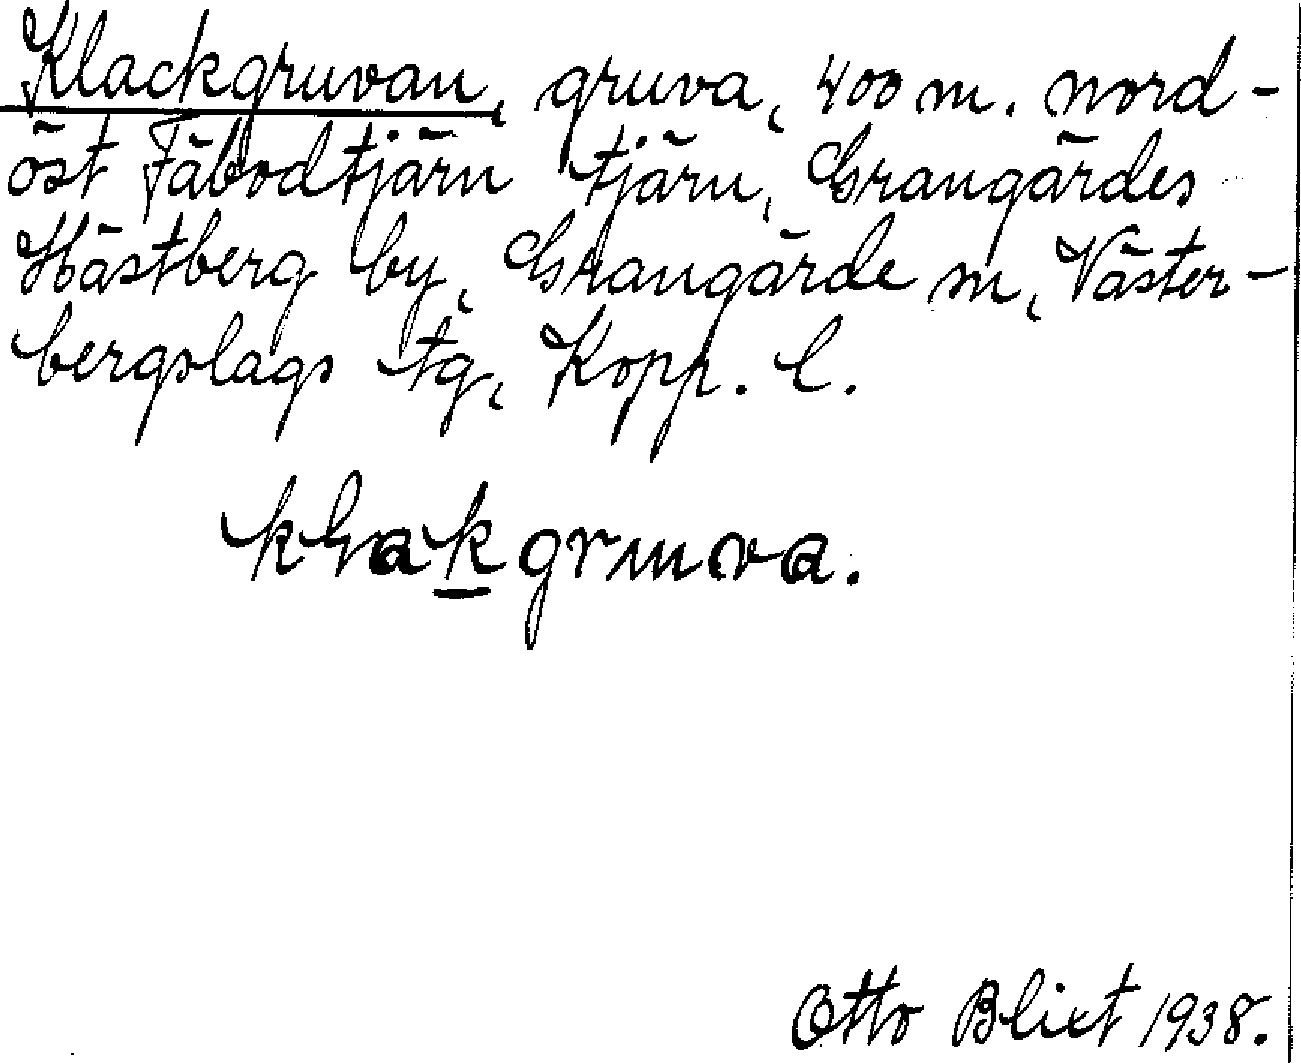 Klackgruvan, gruva, 400 m. nord-
öst Fäbodtjärn tjärn, Grangärdes
Hästberg by, Grangärde m, Väster-
bergslags tg, Kopp. l.
kɬak̲gruva.
Otto Blixt 1938.